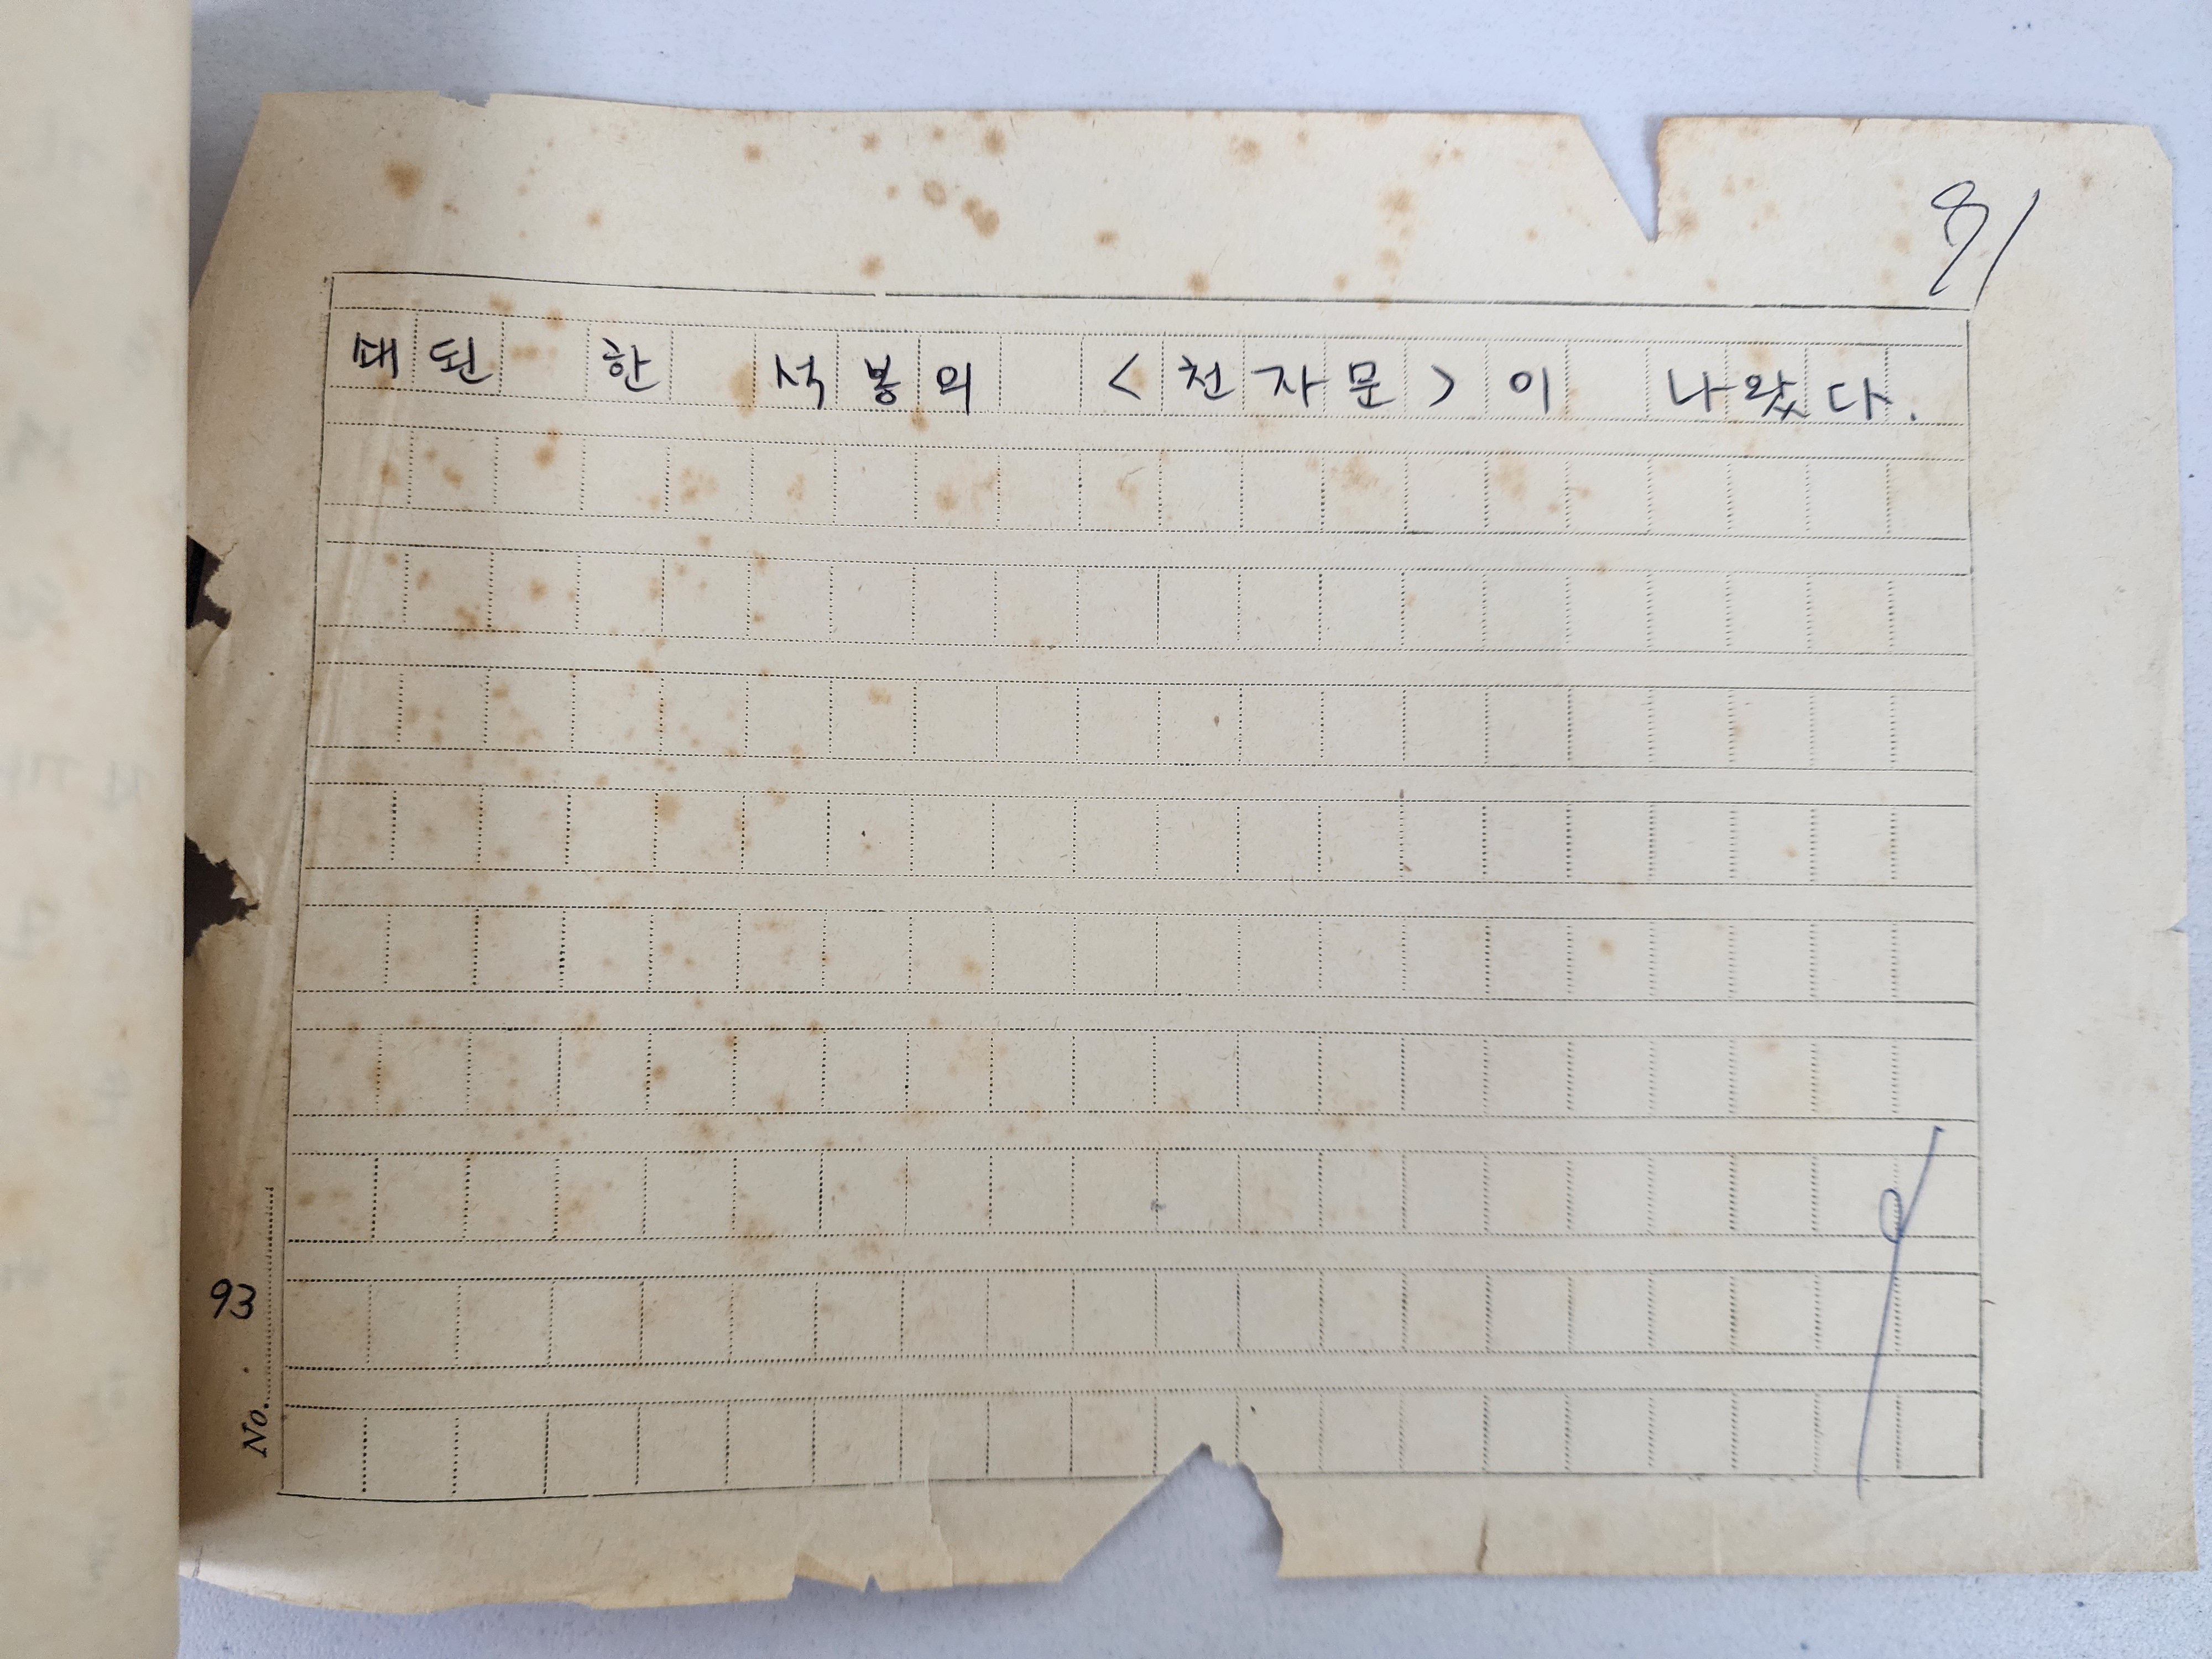 91
쇄된 한 석봉의 <천자문>이 나왔다.
93
No.